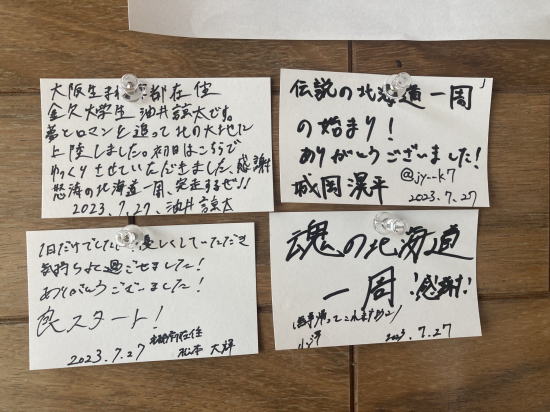 大阪生まれ京都在住
金欠大学生 油井諒太です。
夢とロマンを追って北の大地に
上陸しました。初日はこちらで
ゆっくりさせていただきました、感謝
怒涛の北海道一周、完走するぜ!!
2023.7.27、油井諒太
伝説の北海道一周
の始まり!
ありがとうございました!
城岡滉平 @jy--k7
2023.7.27
1日だけでした 楽しくしていただき
気持ちよく過ごせました!
ありがとうございました!
良スタート!
在住
2023.7.27 松本 大輝
魂の北海道
一周 !感謝!
2023.7.27